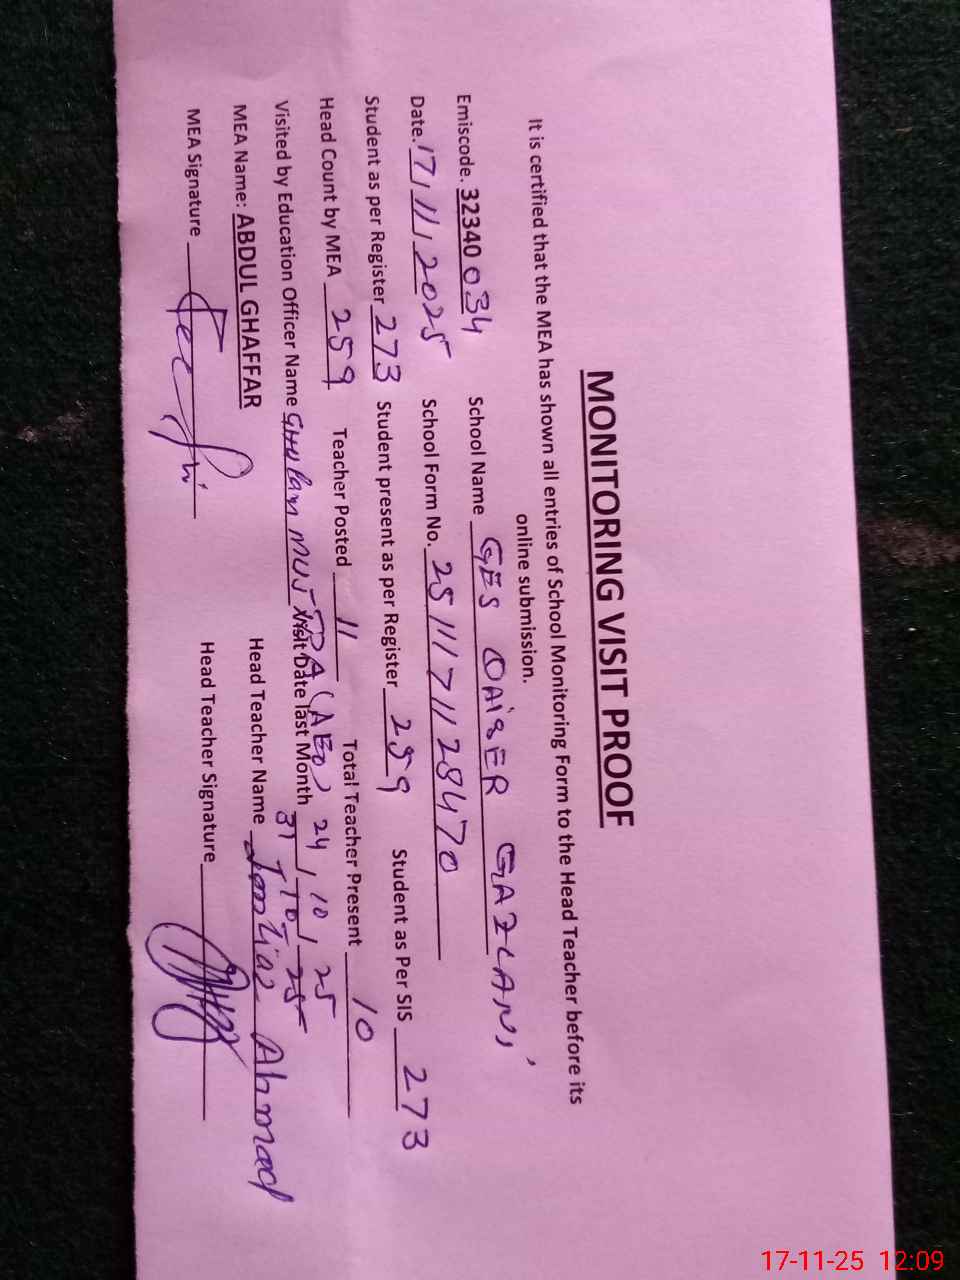 MONITORING VISIT PROOF
It is certified that the MEA has shown all entries of School Monitoring Form to the Head Teacher before its
online submission.
Emiscode. 32340 034 School Name GES QAISER GAZLANI
Date. 17/11/2025 School Form No. 25 11 17 11 28470
Student as per Register 273 Student present as per Register 259 Student as Per SIS 273
Head Count by MEA 259 Teacher Posted 11 Total Teacher Present 10
Visited by Education Officer Name Ghulam MUJTBA (AEO) Visit Date last Month 24/10/25
31-10-25
MEA Name: ABDUL GHAFFAR Head Teacher Name Imtiaz Ahmad
MEA Signature Head Teacher Signature
17-11-25 12:09